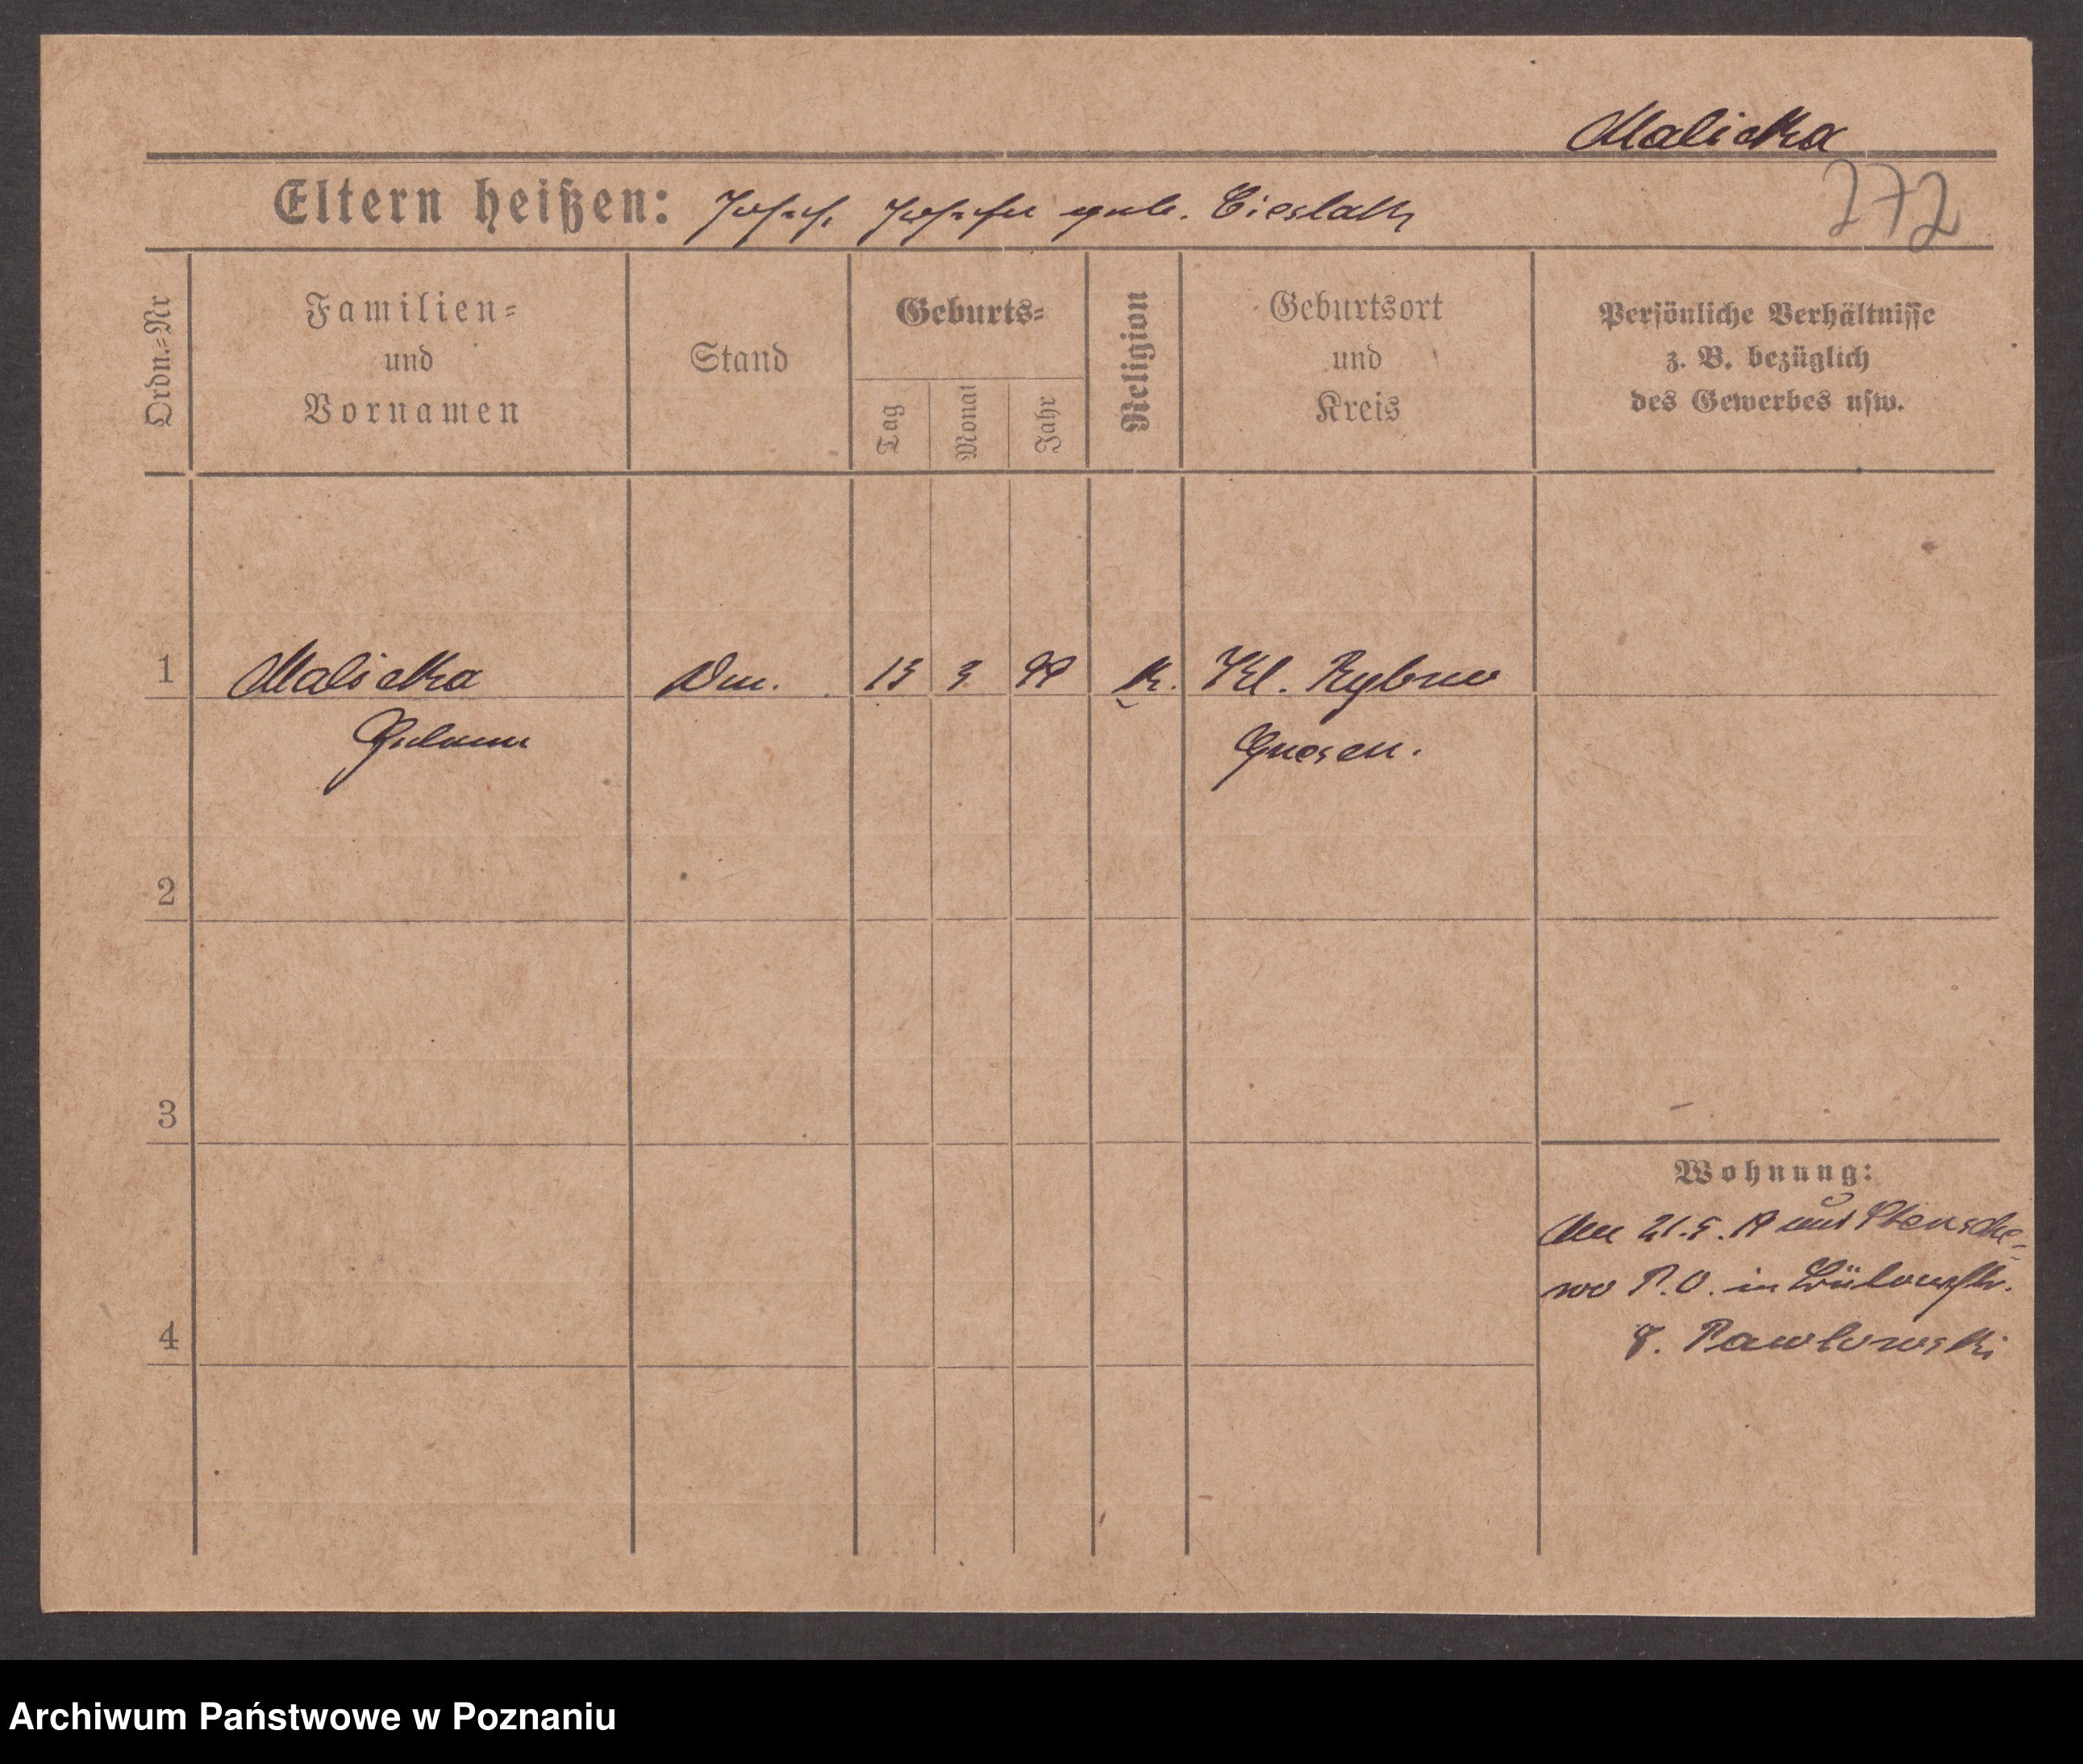 Malicka
Eltern heißen: Josef, Josefa geb. Cieslak
272
Ordn.-Nr
Familien-
und
Vornamen
Stand
Geburts-
Tag
Monat
Jahr
Religion
Geburtsort
und
Kreis
Persönliche Verhältnisse
z. B. bezüglich
des Gewerbes usw.
1 Malicka Dm. 15 3 99 K. Kl. Rybno
Gnesen.
2
3
4
Wohnung:
Am 21.5.19 aus Stensche-
wo P.O. in Bülowstr.
8. Pawlowski
Archiwum Państwowe w Poznaniu